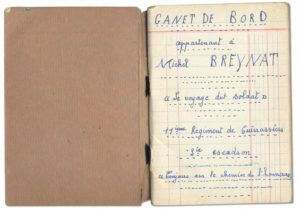 CANET DE BORD
appartenant à
Michel BREYNAT
« Le voyage du soldat »
11ème Régiment de Cuirassiers
3e escadron
« Toujours sur le chemin de l'honneur